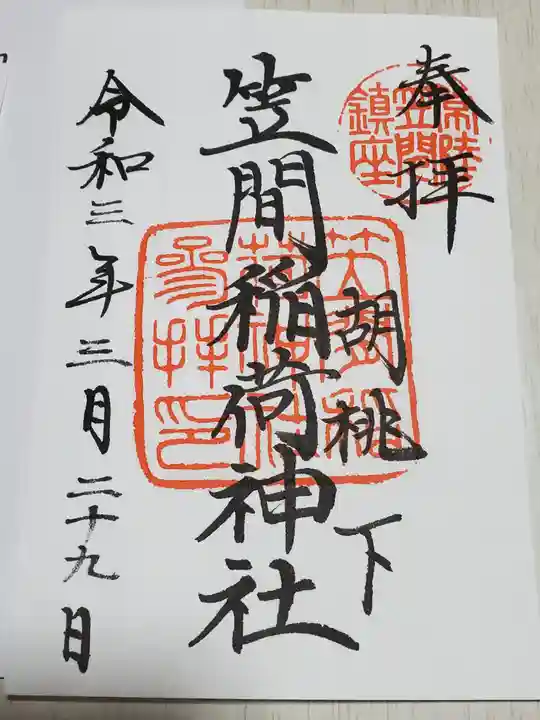 奉拝
常陸
笠間
鎮座
胡桃下
笠間稲荷神社
笠間稲
荷神社
参拝印
令和三年三月二十九日